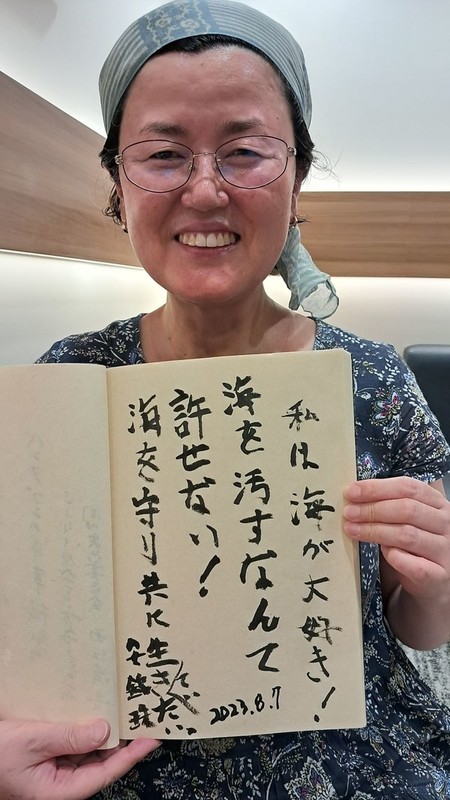 私は海が大好き!
海を汚すなんて
許せない!
海を守り共に
2023.8.7